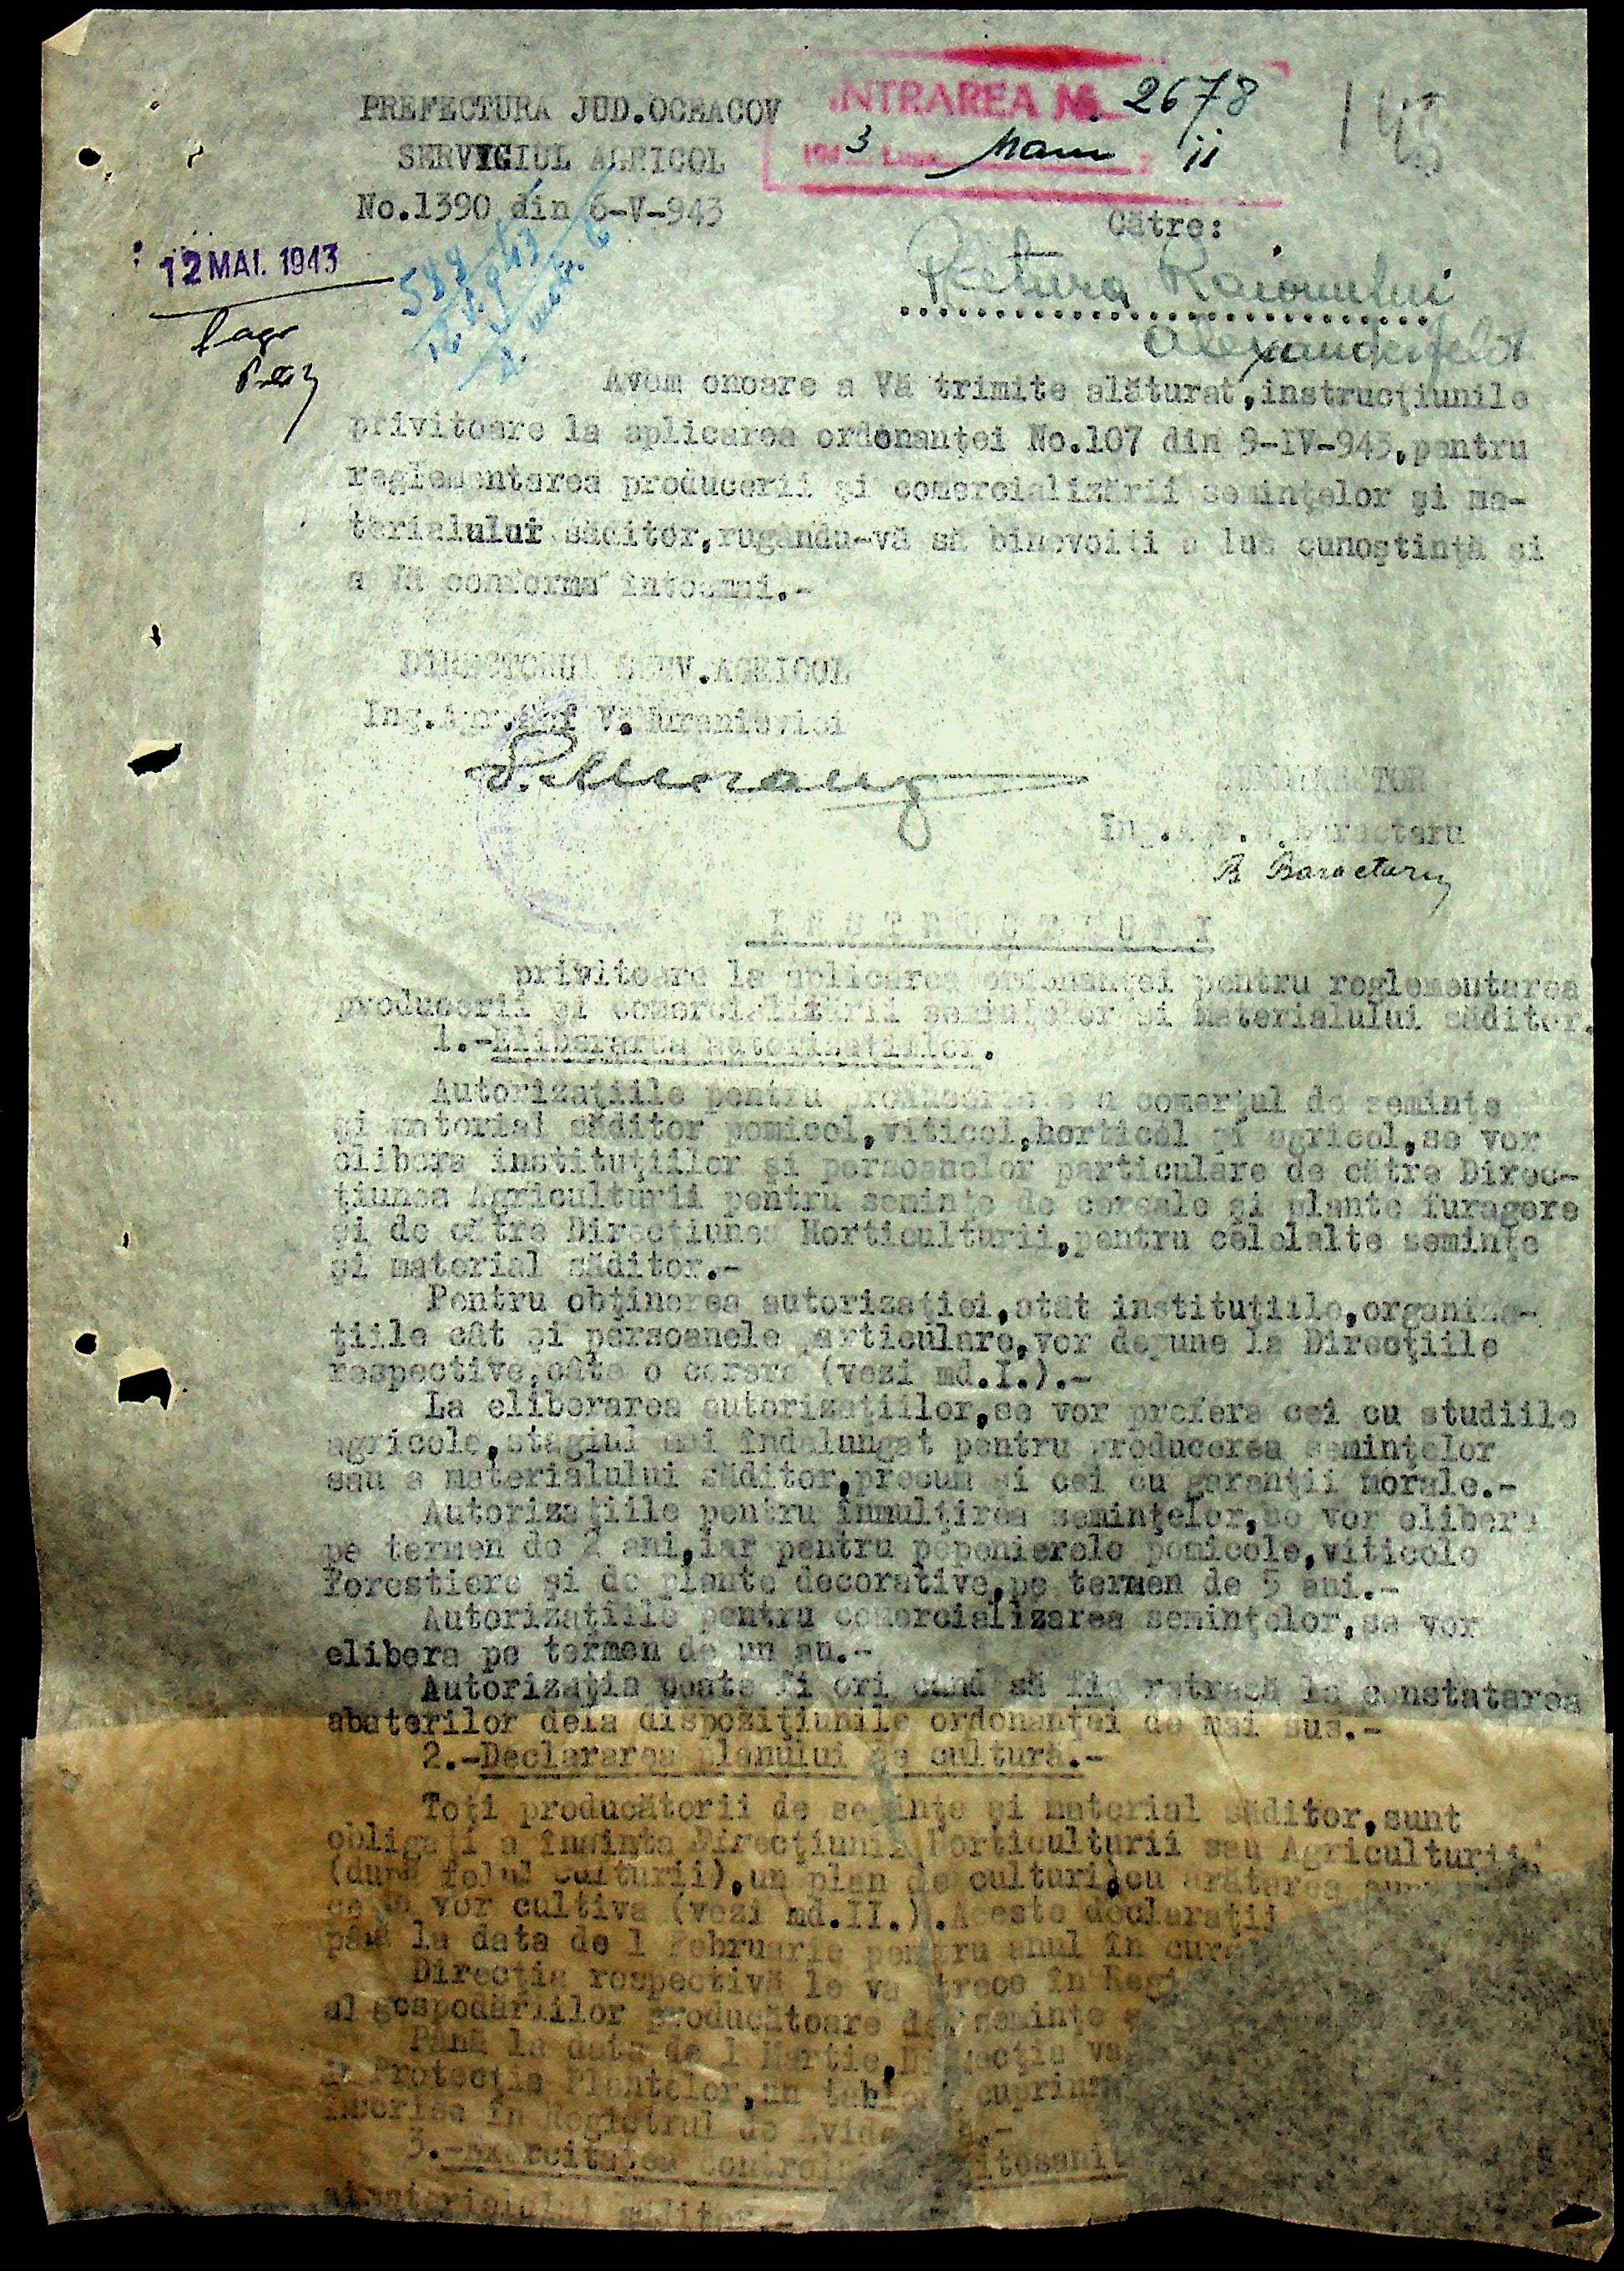 PREFECTURA JUD.OCEACOV
SERVICIUL AGRICOL
No.1390 din 6-V-943
INTRAREA No. 2678
12 MAI. 1943
Către:
Pretura Raionului
Alexanderfeld
Avem onoare a Vă trimite alăturat,instrucţiunile
privitoare la aplicarea ordonanţei No.107 din 9-IV-943,pentru
reglementarea producerii şi comercializării seminţelor şi ma-
terialului săditor,rugându-vă să binevoiţi a lua cunoştinţă si
a Vă conforma întocmai.-
DIRECTORUL SERV.AGRICOL
Ing.Agr.
Ing.
B Baractaru
INSTRUCŢIUNI
privitoare la aplicarea ordonanţei pentru reglementarea
producerii şi comercializării seminţelor şi materialului săditor.
1.-Eliberarea autorizaţiilor.
Autorizaţiile pentru producerea a comerţul de seminţe
şi material săditor pomicol,viticol,horticol şi agricol,se vor
elibera instituţiilor şi persoanelor particulare de către Direc-
ţiunea Agriculturii pentru seminţe de cereale şi plante furagere
şi de către Direcţiunea Horticulturii,pentru celelalte seminţe
şi material săditor.-
Pentru obţinerea autorizaţiei,atât instituţiile,organiza-
ţiile cât şi persoanele particulare,vor depune la Direcţiile
respective,câte o cerere (vezi md.I.).-
La eliberarea autorizaţiilor,se vor prefera cei cu studiile
agricole,stagiul mai îndelungat pentru producerea seminţelor
sau a materialului săditor,precum şi cei cu garanţii morale.-
Autorizaţiile pentru înmulţirea seminţelor,se vor elibera
pe termen de 2 ani,iar pentru pepenierele pomicole,viticole
forestiere şi de plante decorative,pe termen de 5 ani.-
Autorizaţiile pentru comercializarea seminţelor,se vor
elibera pe termen de un an.-
Autorizaţia poate fi ori când să fie retrasă la constatarea
abaterilor dela dispoziţiunile ordonanţei de mai sus.-
2.-Declararea planului de cultură.-
Toţi producătorii de seminţe şi material săditor,sunt
obligaţi a înainta Direcţiunii Horticulturii sau Agriculturii
(după felul culturii),un plan de culturi,cu arătarea
ce se vor cultiva (vezi md.II.).Aceste declaraţii
până la data de 1 Februarie pentru anul în curs
Direcţia respectivă le va trece în Regi
al gospodăriilor producătoare de seminţe ş
Până la data de 1 Martie,Direcţia va
Protecţia Plantelor,un tablou cuprinz
înscrise în Registrul de Evidenţă.-
3.-Exercitarea controlului fitosanit
materialului săditor.-